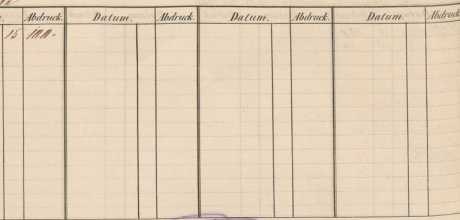 Abdruck. Datum. Abdruck. Datum. Abdruck. Datum. Abdruck.
15 1000.-